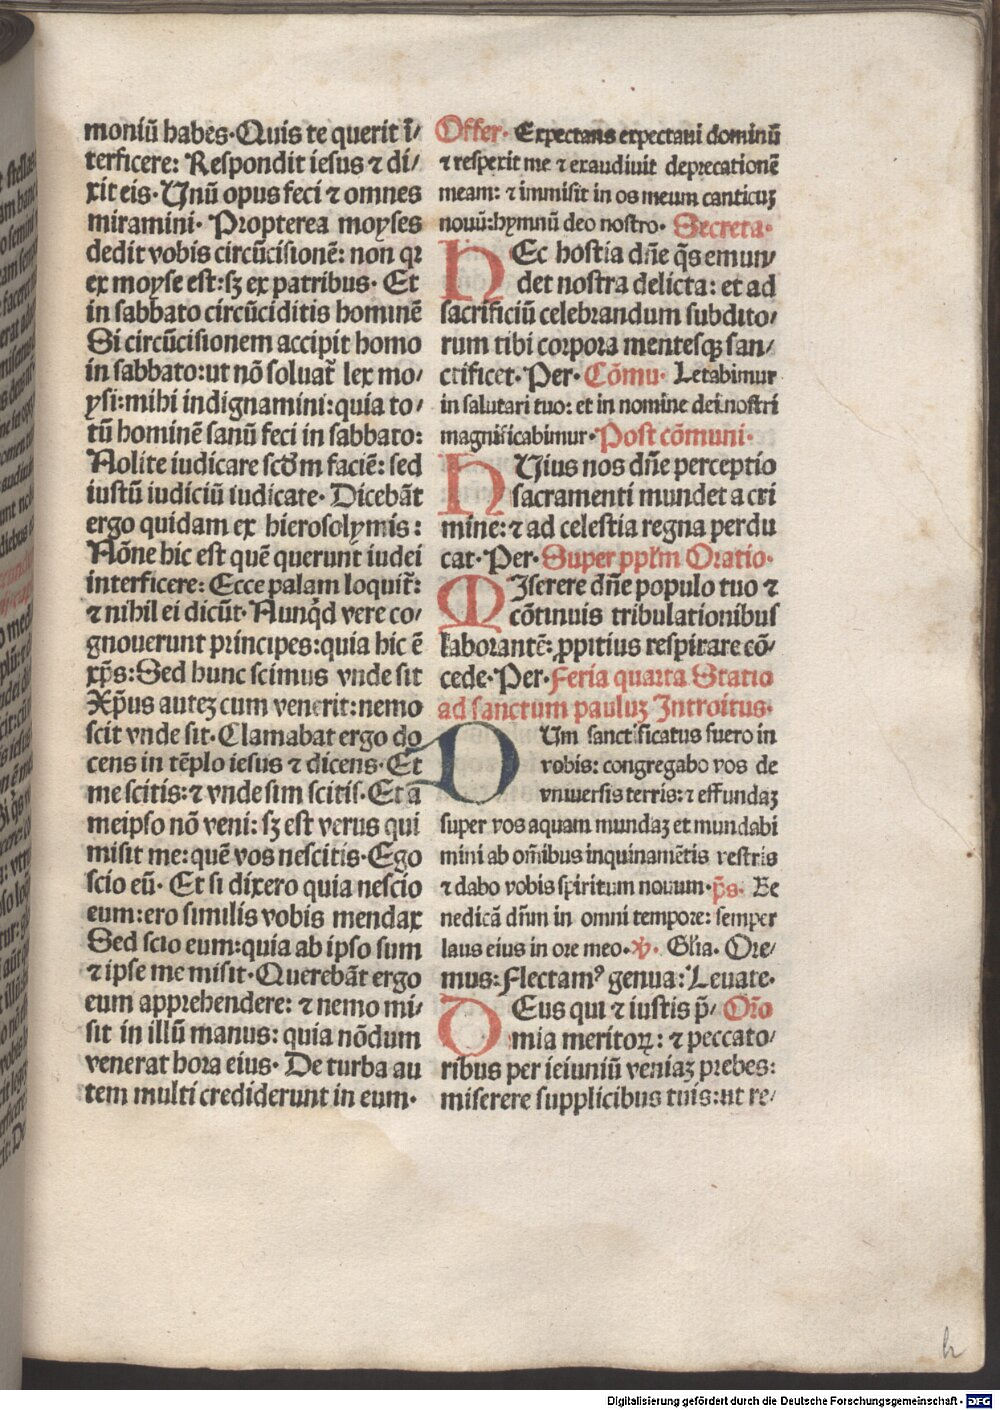 moniũ habes·Quis te querit ĩ/
terficere: Respondit iesus ⁊ di/
xit eis·Unũ opus feci ⁊ omnes
miramini· Propterea moyses
dedit vobis circũcisionẽ: non qꝛ
ex moyse est:sꝫ ex patribus· Et
in sabbato circũciditis hominẽ
Si circũcisionem accipit homo
in sabbato:ut nõ soluat᷑ lex mo/
ysi:mihi indignamini:quia to/
tũ hominẽ sanũ feci in sabbato:
Nolite iudicare scd̃m faciẽ: sed
iustũ iudiciũ iudicate· Dicebãt
ergo quidam ex hierosolymis:
Nõne hic est quẽ querunt iudei
interficere: Ecce palam loquit᷑:
⁊ nihil ei dicũt·Nunq̃d vere co/
gnouerunt principes:quia hic ẽ
xp̃s:Sed hunc scimus vnde sit
Xp̃us autez cum venerit:nemo
scit vnde sit·Clamabat ergo do
cens in tẽplo iesus ⁊ dicens·Et
me scitis:⁊ vnde sim scitis·Et a
meipso nõ veni: sꝫ est verus qui
misit me:quẽ vos nescitis·Ego
scio eũ· Et si dixero quia nescio
eum:ero similis vobis mendax
Sed scio eum:quia ab ipso sum
⁊ ipse me misit·Querebãt ergo
eum apprehendere: ⁊ nemo mi/
sit in illũ manus: quia nõdum
venerat hora eius· De turba au
tem multi crediderunt in eum·
Offer· Expectans expectaui dominũ
⁊ respexit me ⁊ exaudiuit deprecationẽ
meam: ⁊ immisit in os meum canticuꝫ
nouũ:hymnũ deo nostro· Secreta·
HEc hostia dñe q̃s emun/
det nostra delicta: et ad
sacrificiũ celebrandum subdito/
rum tibi corpora mentesqꝫ san/
ctificet·Per· Cõmu· Letabimur
in salutari tuo: et in nomine dei nostri
magnificabimur·Post cõmuni·
HUius nos dñe perceptio
sacramenti mundet a cri
mine:⁊ ad celestia regna perdu
cat·Per·Super pp̃lm Oratio·
MIserere dñe populo tuo ⁊
cõtinuis tribulationibus
laborantẽ: ꝓpitius respirare cõ/
cede·Per·Feria quarta Statio
ad sanctum pauluꝫ Introitus·
DUm sanctificatus fuero in
vobis: congregabo vos de
vniuersis terris: ⁊ effundaꝫ
super vos aquam mundaꝫ et mundabi
mini ab om̃ibus inquinamẽtis vestris
⁊ dabo vobis spiritum nouum·p̃s· Be
nedicã dñm in omni tempore: semper
laus eius in ore meo·℣· Gl̃ia· Ore/
mus:Flectamꝰ genua:Leuate·
DEus qui ⁊ iustis p̃/ Oro
mia meritoꝝ: ⁊ peccato/
ribus per ieiuniũ veniaꝫ prebes:
miserere supplicibus tuis:ut re/
h
Digitalisierung gefördert durch die Deutsche Forschungsgemeinschaft · DFG